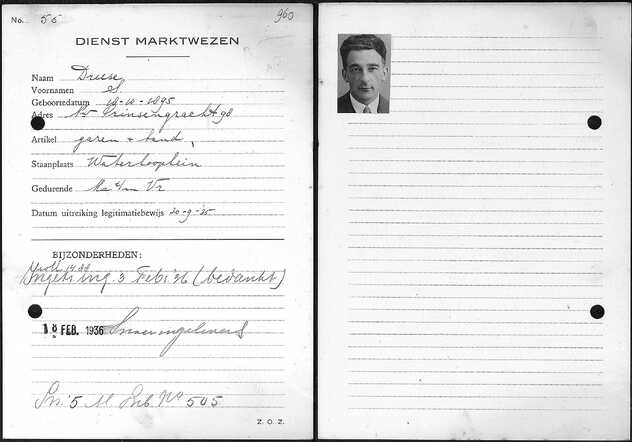 No. 56 960
DIENST MARKTWEZEN
Naam Driese
Voornamen S
Geboortedatum 14-10-1895
Adres Nwe Prinsengracht 98
Artikel garen + band
Staanplaats Waterlooplein
Gedurende Ma t/m Vr
Datum uitreiking legitimatiebewijs 20-9-'35
BIJZONDERHEDEN:
Ingetr. ing. 3 Feb. '36 (bedankt)
18 FEB. 1936
5 M No 505
Z. O. Z.